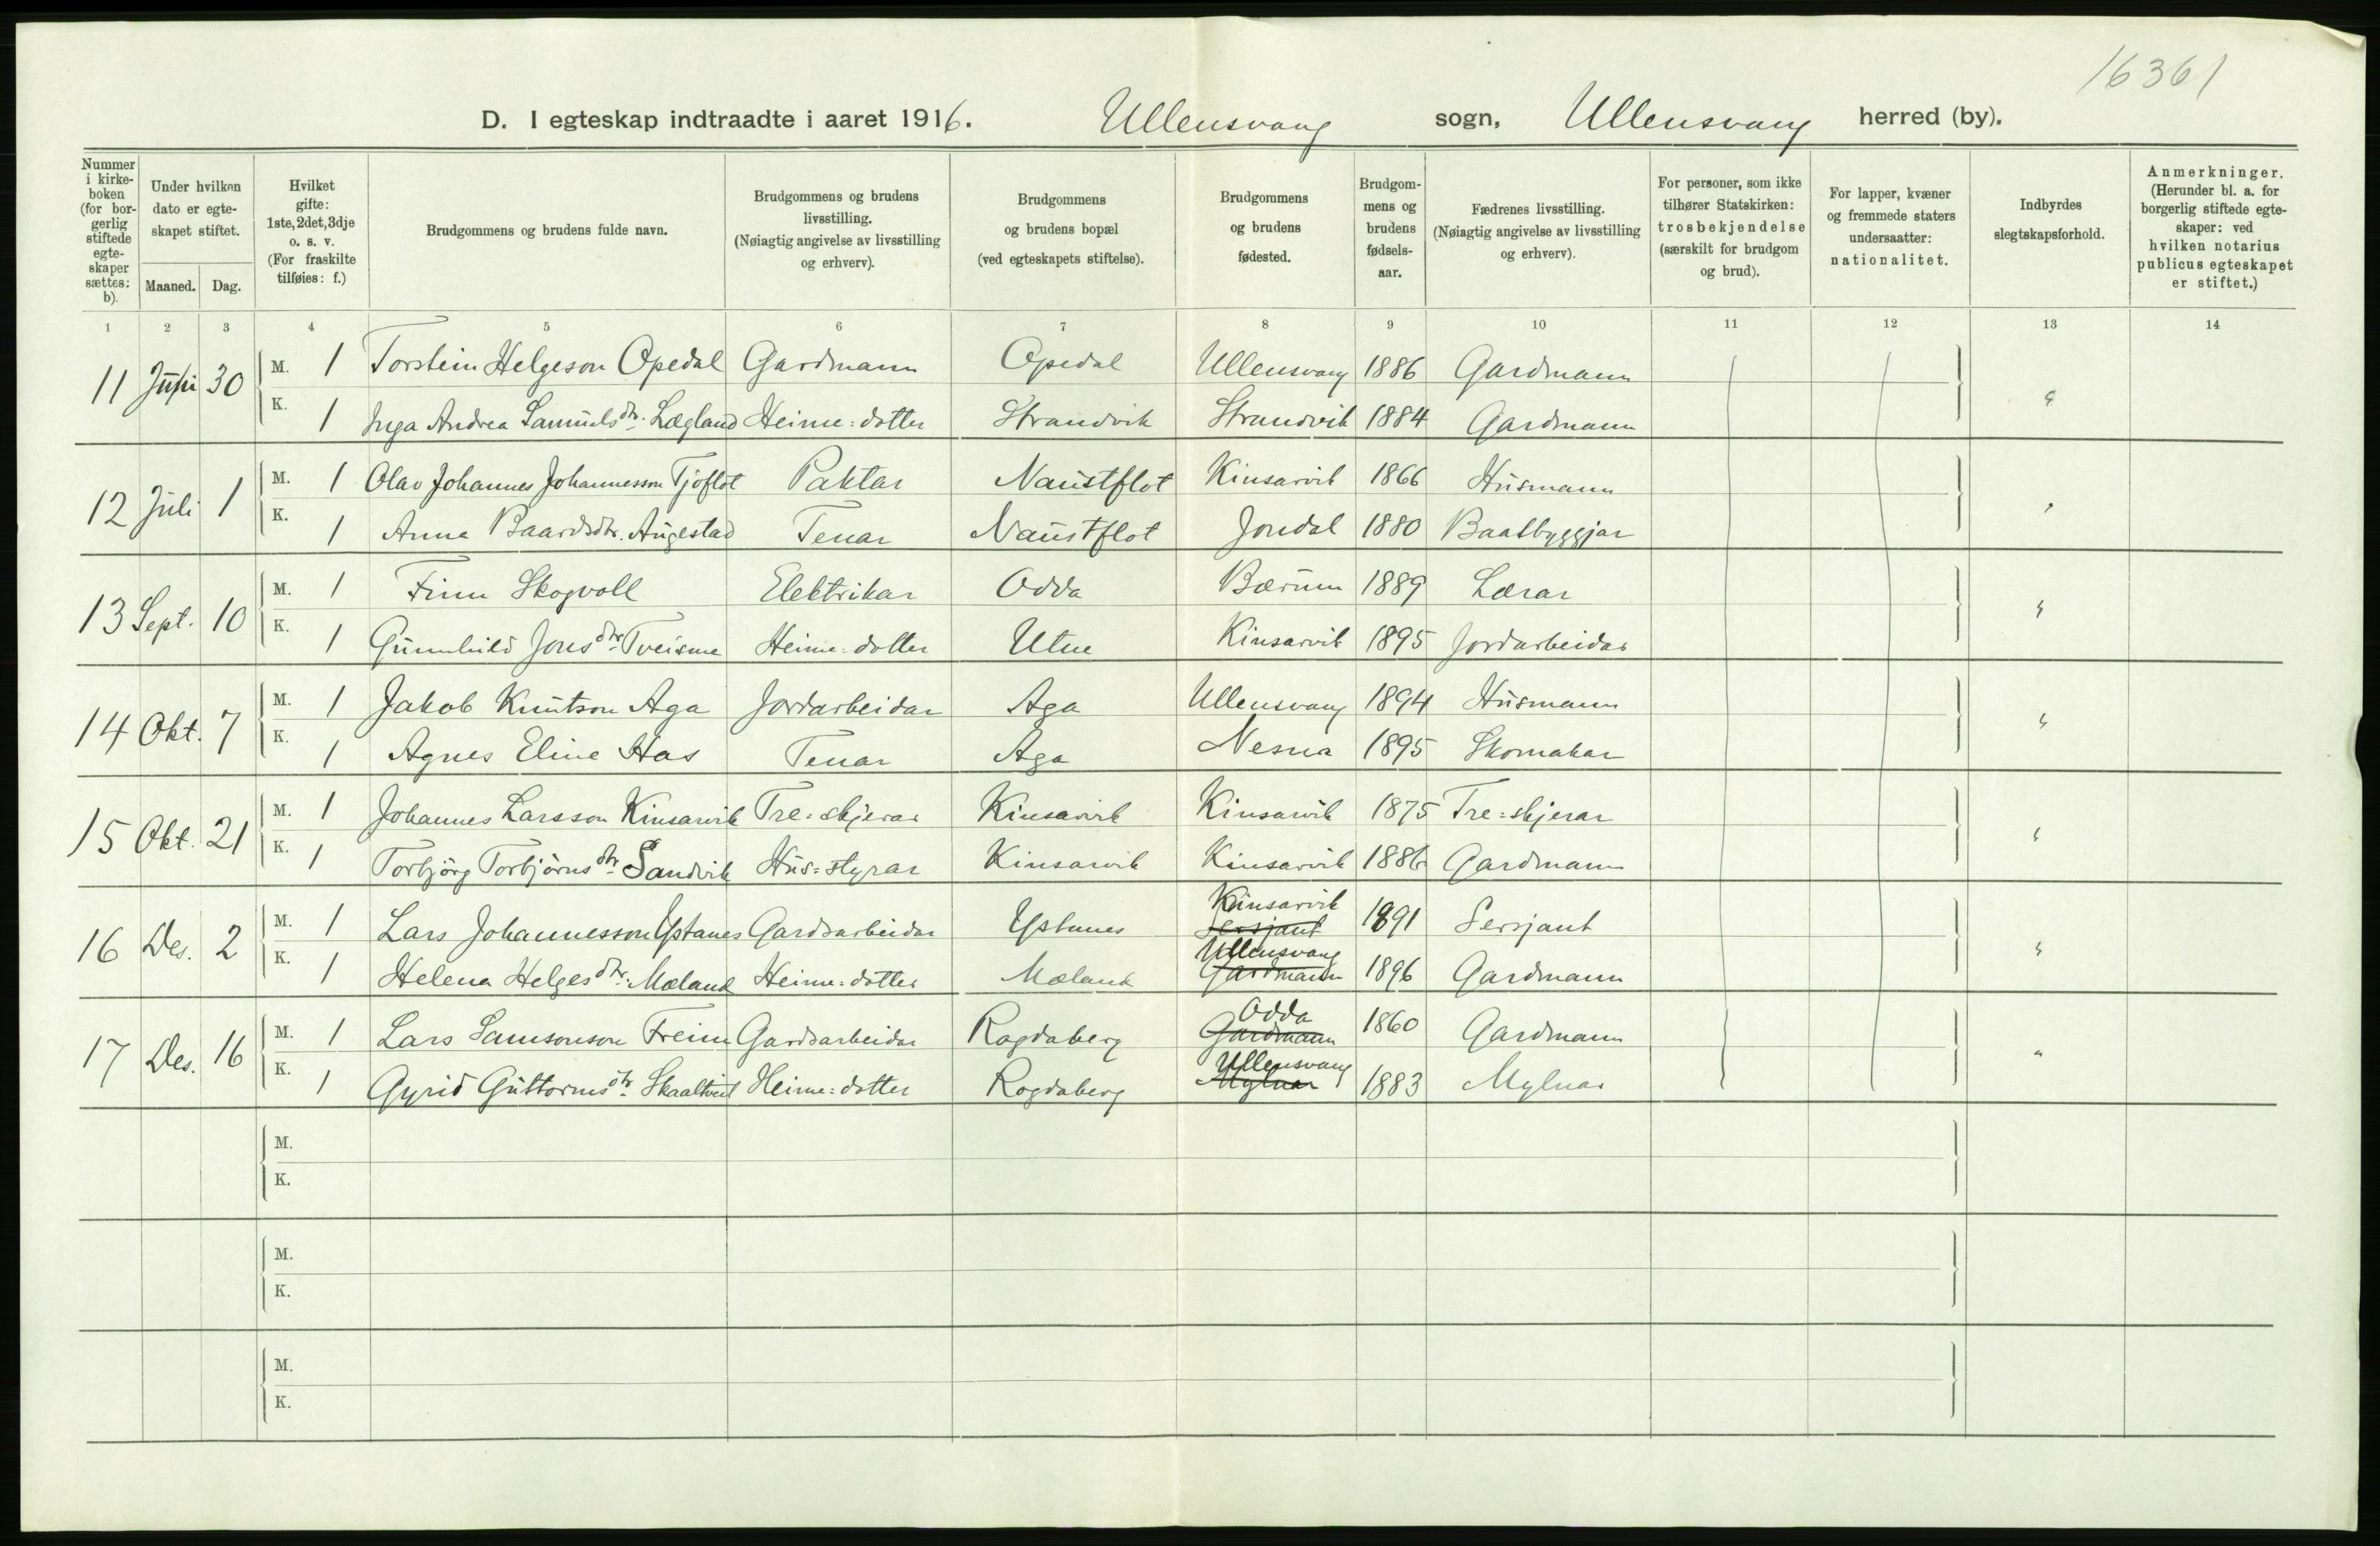 16361
D. I egteskap indtraadte i aaret 1916. Ullensvang sogn, Ullensvang herred (by).
Nummer i kirke-boken (for bor-gerlig stiftede egte-skaper sættes: b).
Under hvilken dato er egte-skapet stiftet.
Maaned. Dag.
Hvilket gifte: 1ste, 2det, 3dje o. s. v. (For fraskilte tilføies: f.)
Brudgommens og brudens fulde navn.
Brudgommens og brudens livsstilling. (Nøiagtig angivelse av livsstilling og erhverv).
Brudgommens og brudens bopæl (ved egteskapets stiftelse).
Brudgommens og brudens fødested.
Brudgom-mens og brudens fødsels-aar.
Fædrenes livsstilling. (Nøiagtig angivelse av livsstilling og erhverv).
For personer, som ikke tilhører Statskirken: trosbekjendelse (særskilt for brudgom og brud).
For lapper, kvæner og fremmede staters undersaatter: nationalitet.
Indbyrdes slegtskapsforhold.
Anmerkninger. (Herunder bl. a. for borgerlig stiftede egte-skaper: ved hvilken notarius publicus egteskapet er stiftet.)
1 2 3 4 5 6 7 8 9 10 11 12 13 14
11 Juni 30 M. 1 Torstein Helgeson Opedal Gardmann Opedal Ullensvang 1886 Gardmann
K. 1 Inga Andrea Samuelsdtr. Lægland Heime=dotter Strandvik Strandvik 1884 Gardmann
12 Juli 1 M. 1 Olav Johannes Johannesson Tjoflot Paktar Naustflot Kinsarvik 1866 Husmann
K. 1 Anna Baardsdtr. Augestad Tenar Naustflot Jondal 1880 Baatbyggjar
13 Sept. 10 M. 1 Finn Skogvoll Elektrikar Odda Bærum 1889 Lærar
K. 1 Gunnhild Jonsdtr. Tveisme Heime=dotter Utne Kinsarvik 1895 Jordarbeidar
14 Okt. 7 M. 1 Jakob Knutson Aga Jordarbeidar Aga Ullensvang 1894 Husmann
K. 1 Agnes Eline Has Tenar Aga Nesna 1895 Skomakar
15 Okt. 21 M. 1 Johannes Larsson Kinsarvik Tre=skjerar Kinsarvik Kinsarvik 1875 Tre=skjerar
K. 1 Torbjörg Torbjörnsdtr. Sandvik Hus=styrar Kinsarvik Kinsarvik 1886 Gardmann
16 Des. 2 M. 1 Lars Johannesson Ystanes Gardsarbeidar Ystanes Kinsarvik Sersjant 1891 Sersjant
K. 1 Helena Helgesdtr. Mæland Heime=dotter Mæland Ullensvang Gardmann 1896 Gardmann
17 Des. 16 M. 1 Lars Samsonson Freim Gardsarbeidar Rogdaberg Odda Gardmann 1860 Gardmann
K. 1 Gyrid Guttormsdtr. Skaaltveit Heime=dotter Rogdaberg Ullensvang Mylnar 1883 Mylnar
M.
K.
M.
K.
M.
K.